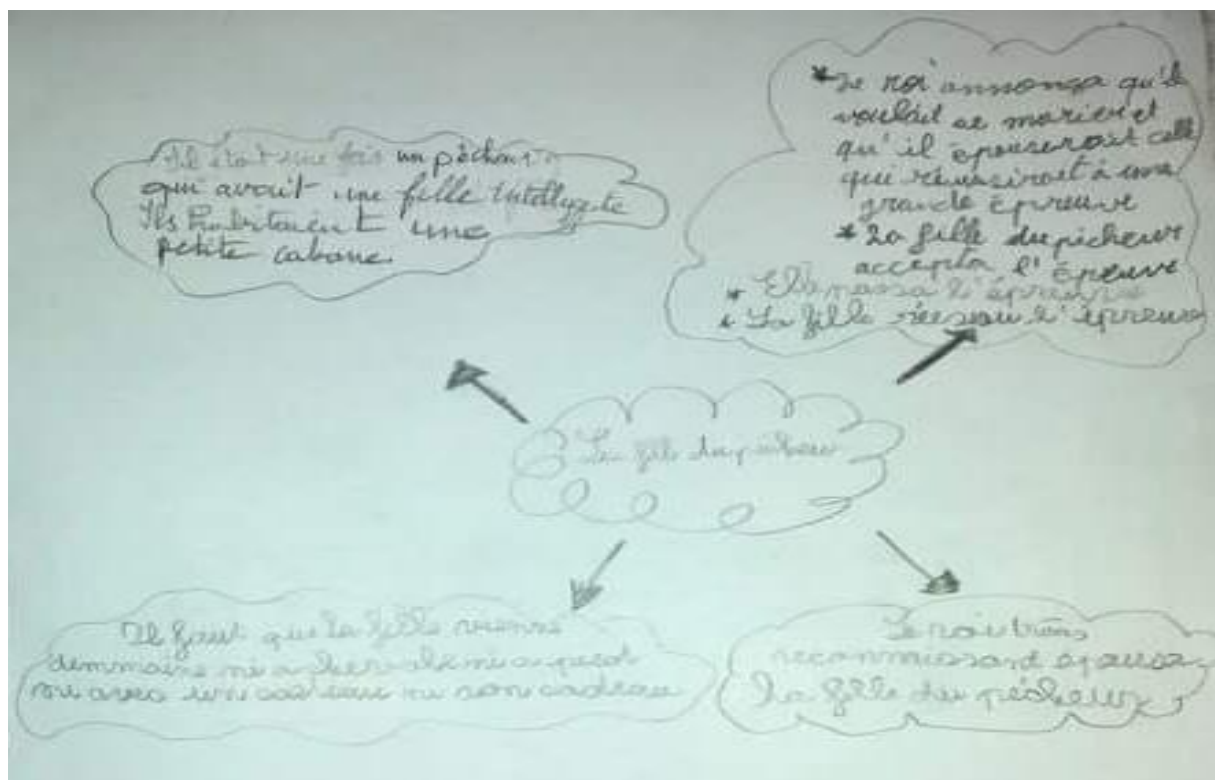 Il était une fois un pêcheur
qui avait une fille intelligente
Ils habitaient une
petite cabane.
* Le roi annonça qu'il
voulait se marier et
qu'il épouserait celle
qui réussirait à une
grande épreuve
* La fille du pêcheur
accepta l'épreuve
* Elle passa l'épreuve
* La fille l'épreuve
La fille du pêcheur
Il faut que la fille vienne
demmaine ni a ni a
ni avec un cadeau ni son cadeau
Le roi très
reconnaissant épousa
la fille du pêcheur